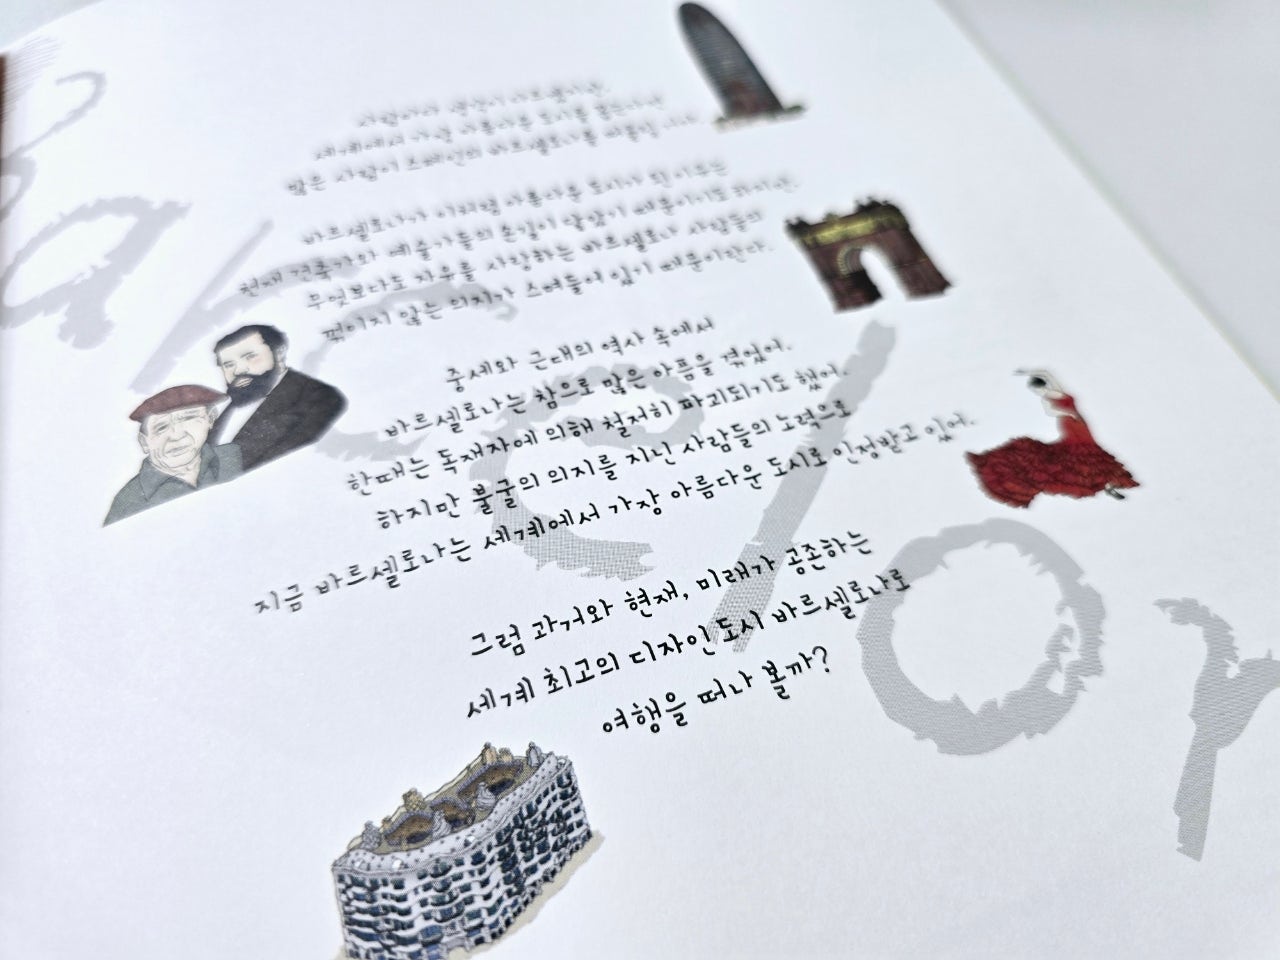 사람마다 생각이 다르겠지만,
세계에서 가장 아름다운 도시를 꼽으라면
많은 사람이 스페인의 바르셀로나를 떠올릴 거야.
바르셀로나가 이처럼 아름다운 도시가 된 이유는
천재 건축가와 예술가들의 손길이 닿았기 때문이기도 하지만,
무엇보다도 자유를 사랑하는 바르셀로나 사람들의
꺾이지 않는 의지가 스며들어 있기 때문이란다.
중세와 근대의 역사 속에서
바르셀로나는 참으로 많은 아픔을 겪었어.
한때는 독재자에 의해 철저히 파괴되기도 했어.
하지만 불굴의 의지를 지닌 사람들의 노력으로
지금 바르셀로나는 세계에서 가장 아름다운 도시로 인정받고 있어.
그럼 과거와 현재, 미래가 공존하는
세계 최고의 디자인 도시 바르셀로나로
여행을 떠나 볼까?